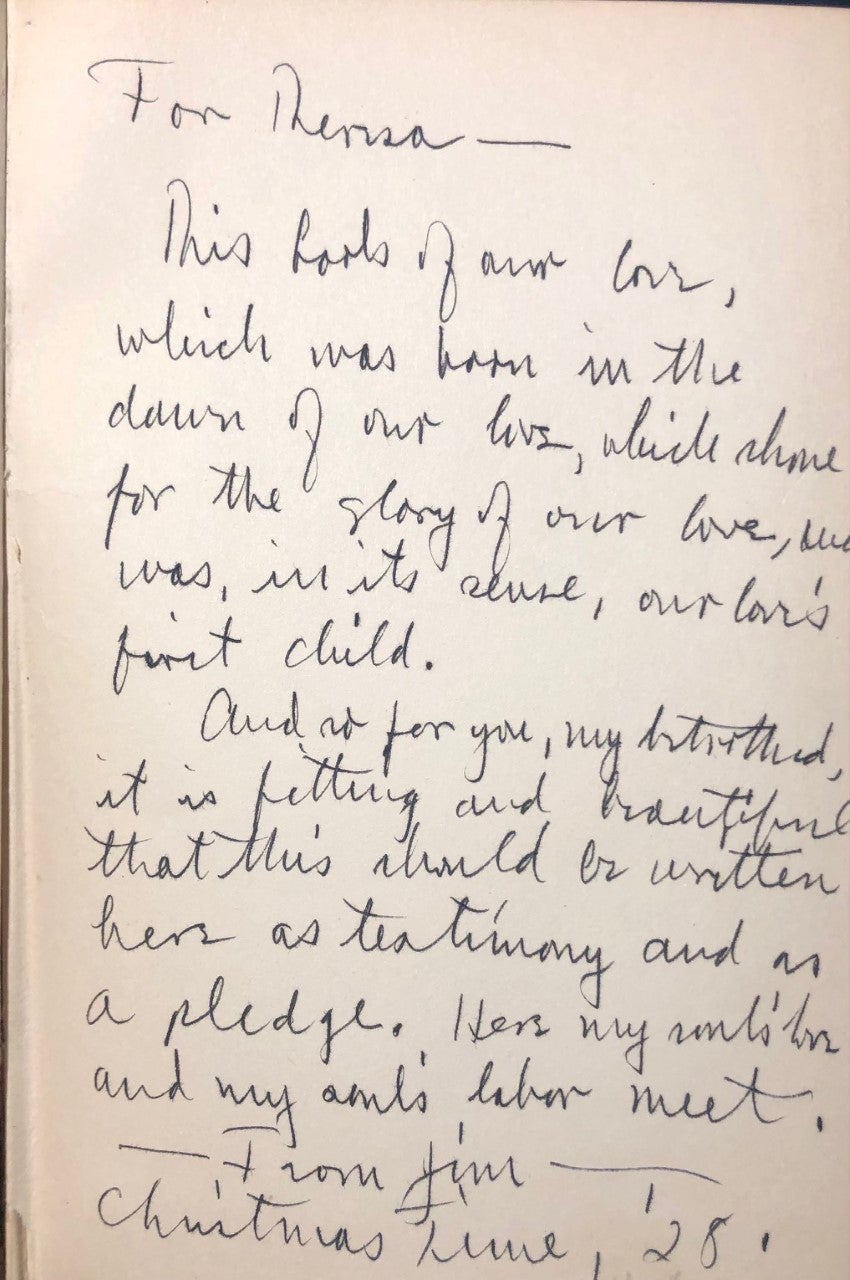 For Theresa —
This book of our love,
which was born in the
dawn of our love, which shone
for the glory of our love,
was, in its sense, our love's
first child.
And so for you, my betrothed,
it is fitting and beautiful
that this should be written
here as testimony and as
a pledge. Here my soul's love
and my soul's labor meet.
— From Jim —
Christmas Time, '28.